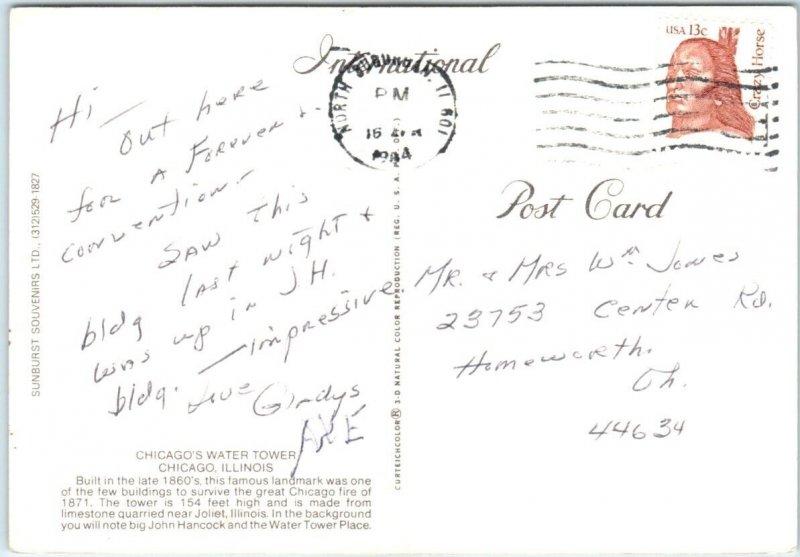 International
NORTH SUBURBAN, IL 601
PM
1984
USA 13c
Crazy Horse
Post Card
Hi —
Out here
for a Forever
convention —
Saw this
bldg last night +
was up in J.H.
bldg. — impressive
Love Gladys
Mr. + Mrs Wm Jones
23753 Center Rd.
Homeworth.
Oh.
44634
SUNBURST SOUVENIRS LTD., (312)529-1827
CURTEICHCOLOR® 3-D NATURAL COLOR REPRODUCTION (REG. U.S.A.
CHICAGO'S WATER TOWER
CHICAGO, ILLINOIS
Built in the late 1860's, this famous landmark was one
of the few buildings to survive the great Chicago fire of
1871. The tower is 154 feet high and is made from
limestone quarried near Joliet, Illinois. In the background
you will note big John Hancock and the Water Tower Place.